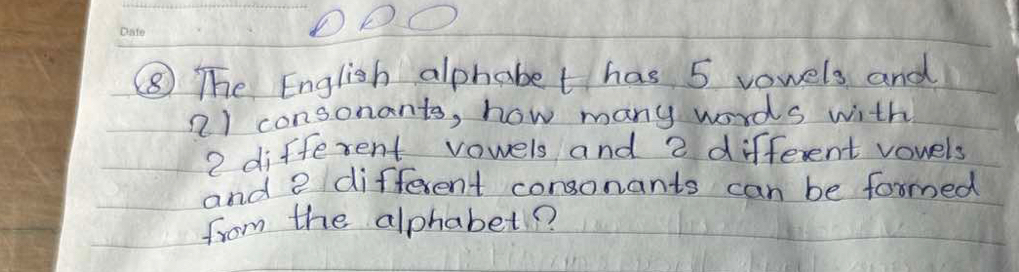 Date
⑧ The English alphabet has 5 vowels and
21 consonants, how many words with
2 different vowels and 2 different vowels
and 2 different consonants can be formed
from the alphabet?